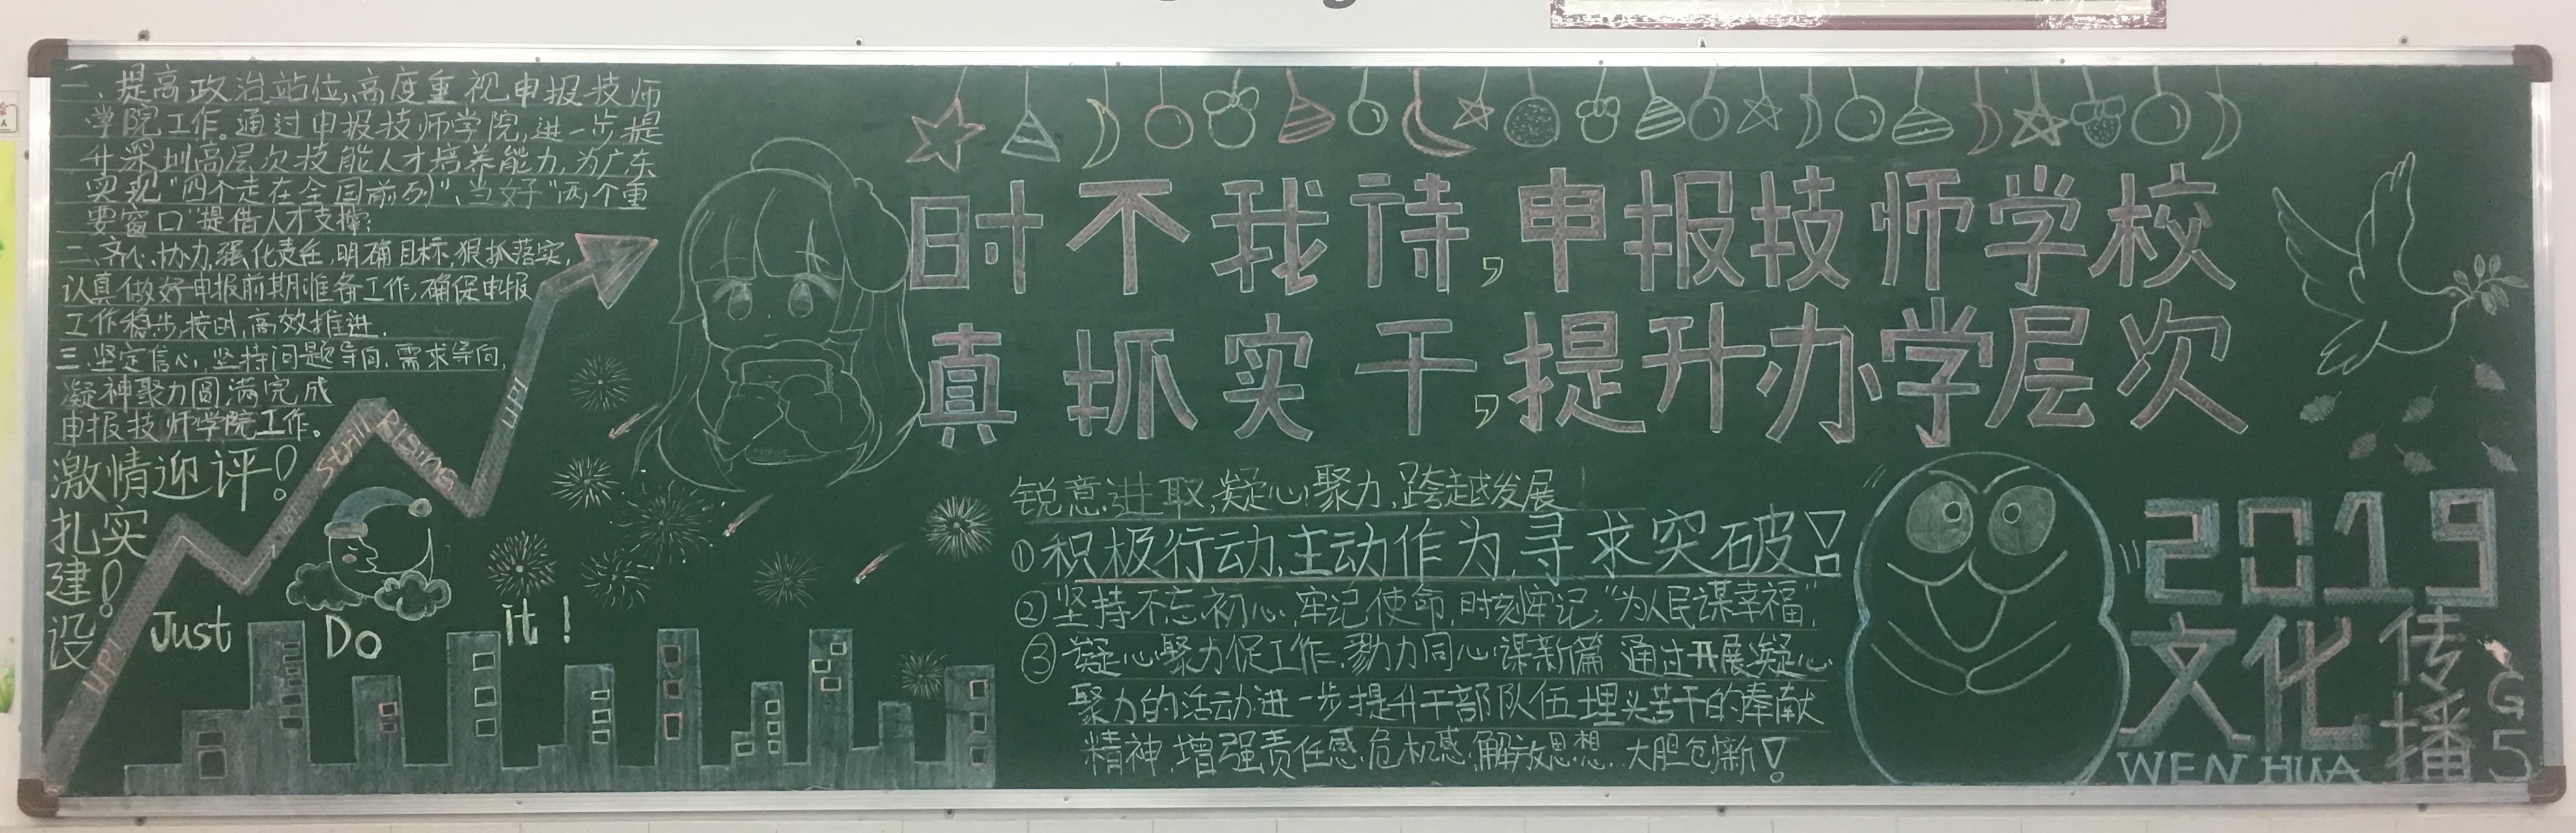 一、提高政治站位,高度重视申报技师
学院工作。通过申报技师学院,进一步提
升深圳高层次技能人才培养能力,为广东
实现"四个走在全国前列"、当好"两个重
要窗口"提借人才支撑;
二、齐心协力,强化责任,明确目标,狠抓落实,
认真做好申报前期准备工作,确保申报
工作稳步,按时,高效推进.
三.坚定信心,坚持问题导向.需求导向,
凝神聚力圆满完成
申报技师学院工作。
激情迎评!
扎实
建设!
UP!
UP!
Still Rising
UP!
Just Do it!
时不我待,申报技师学校
真抓实干,提升办学层次
锐意进取,凝心聚力,跨越发展
①积极行动,主动作为,寻求突破!
②坚持不忘初心,牢记使命,时刻牢记,"为人民谋幸福",
③凝心聚力促工作,勠力同心谋新篇 通过开展凝心
聚力的活动进一步提升干部队伍埋头苦干的奉献
精神,增强责任感,危机感,解放思想,大胆创新!
2019
文化传播
WEN HUA
G5